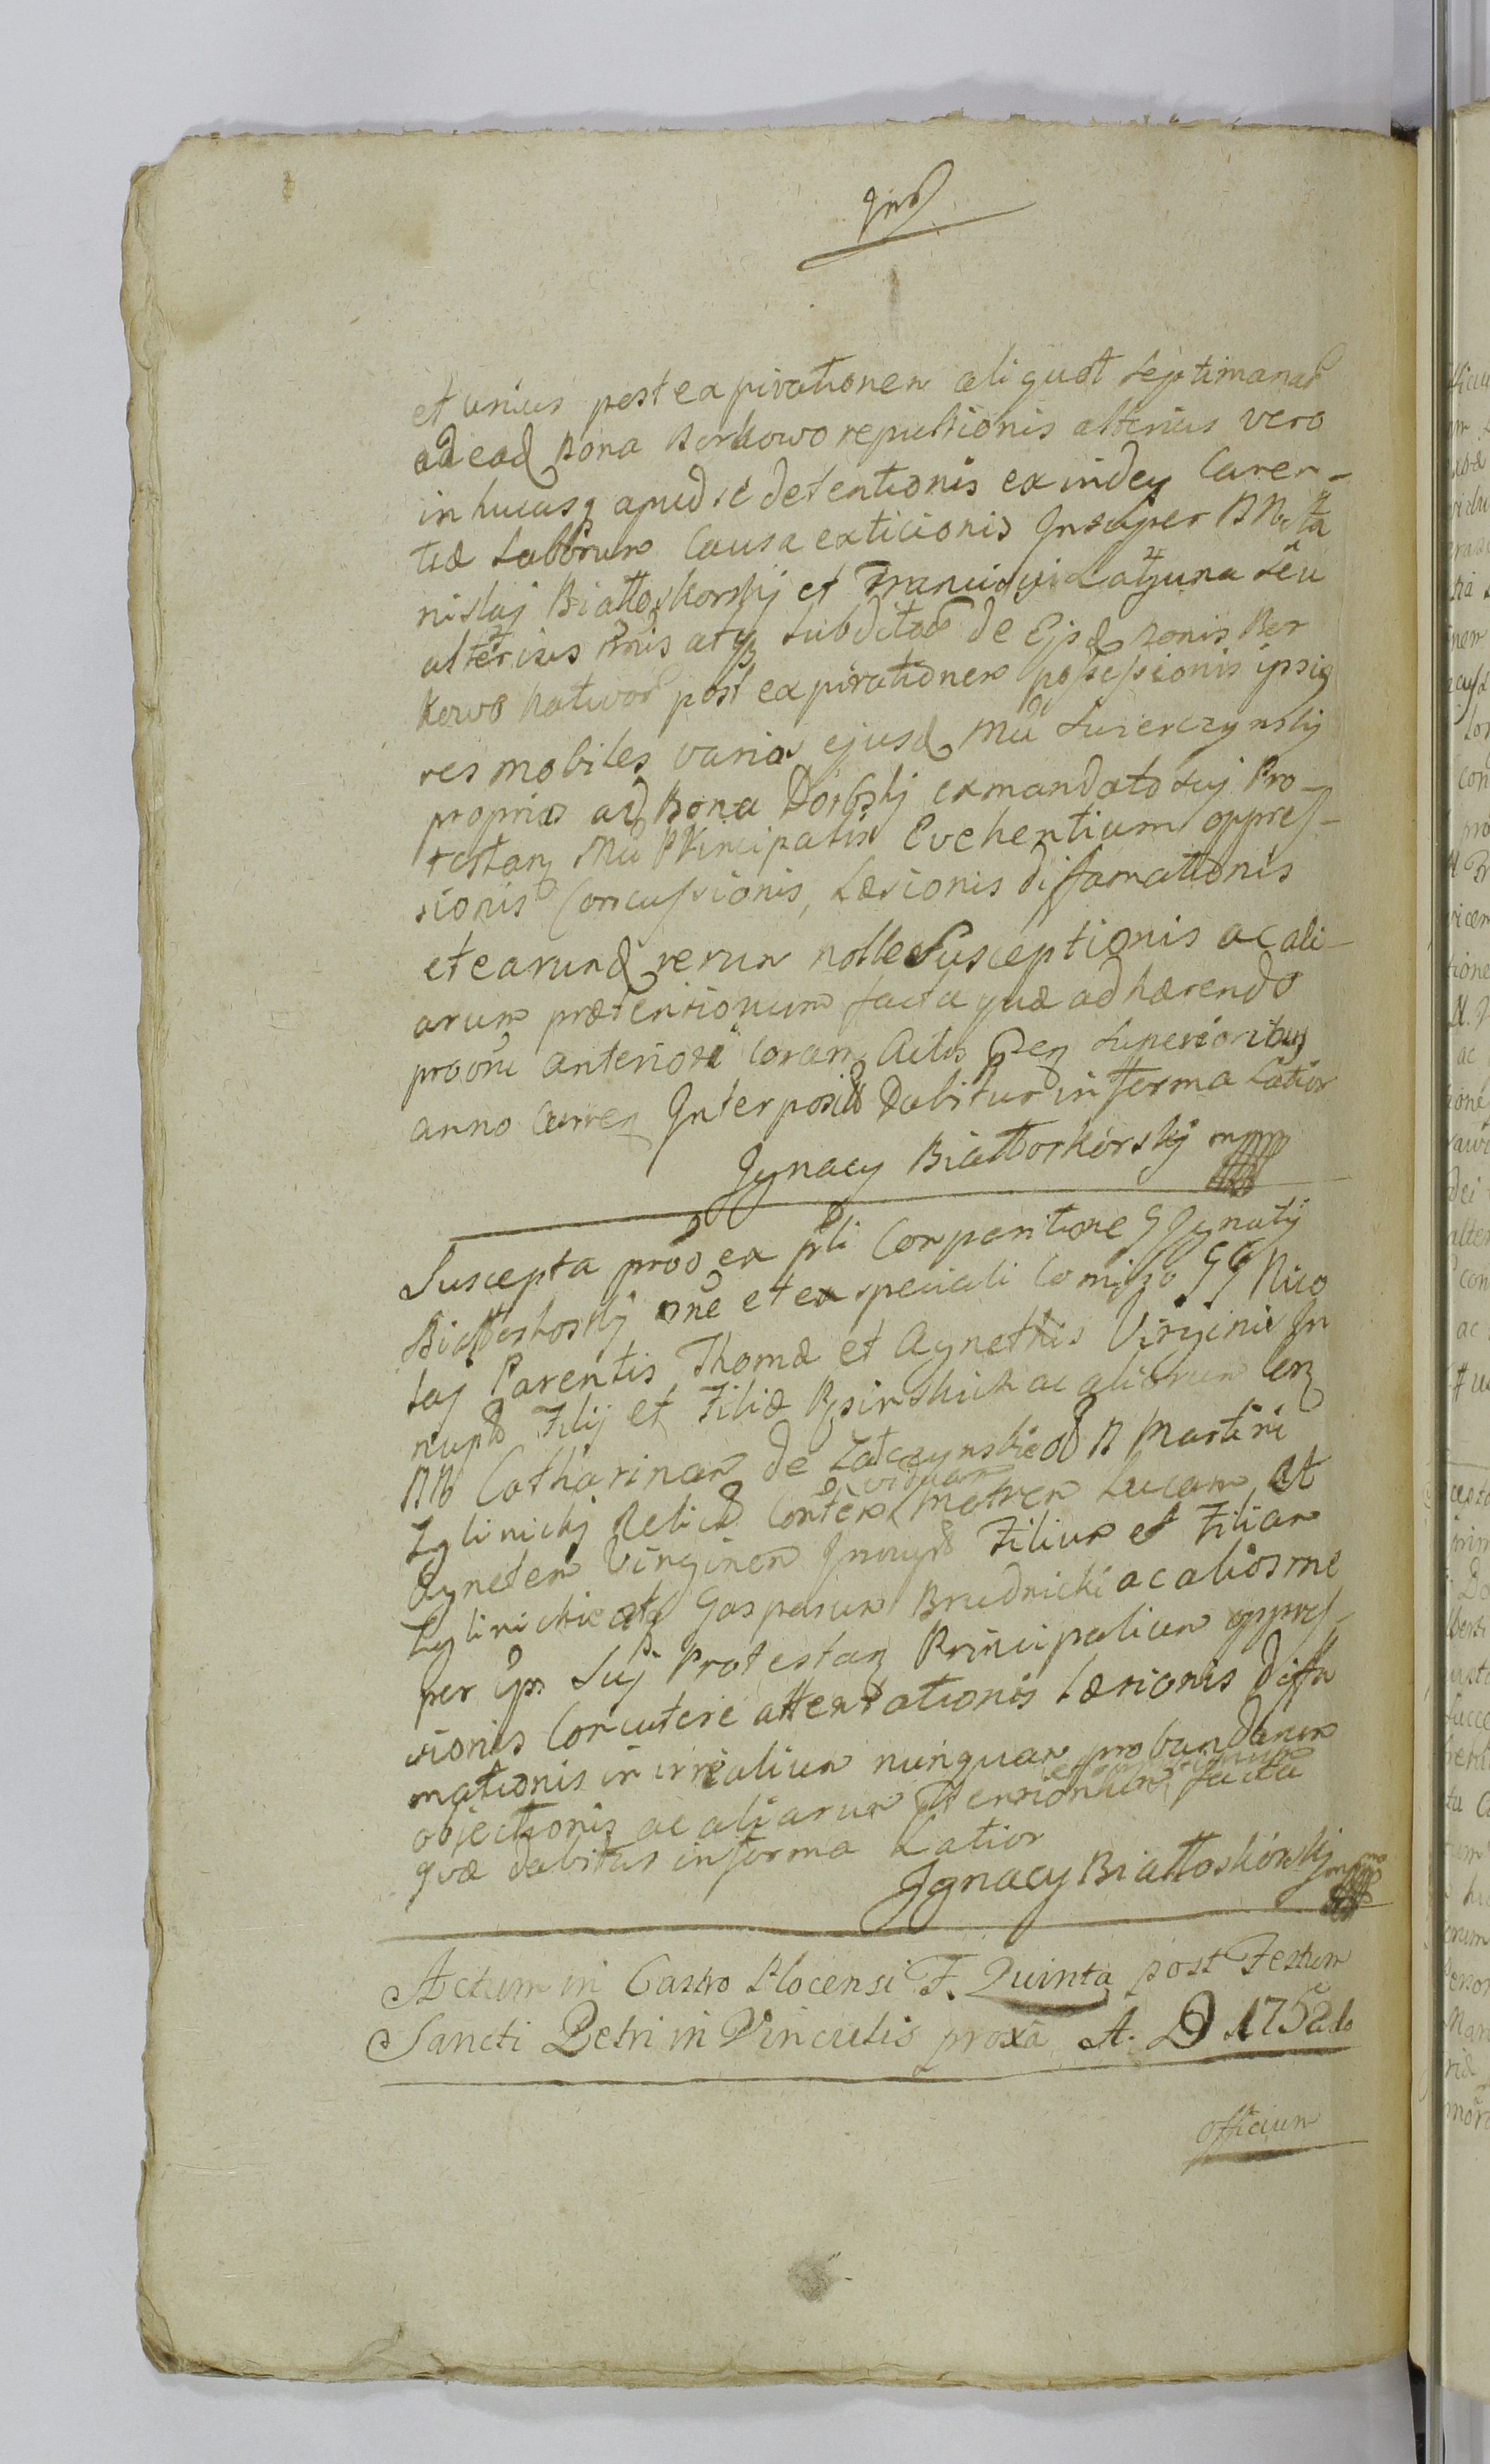 et unius post expirationem aliquot septimanar
ad ead Bona Borkowo repulsionis alterius vero
in hucusq apud se detentionis exindeq Caren-
tiæ Laborum Causæ exticionis Insuper MM Sta
nislaj Białłoskorskj et Francisci Latzuna seu
alterius atq subditor de Ejsd Bonis Bor
kowo nativor post expirationem possessionis ipsiq
res mobiles varias ejusd Mci Swierczynskj
proprias ad Bona Dorbskj ex mandato suj Pro-
testan Mci Principalis Evehentium oppres-
sionis Concussionis, Læsionis diffamationis
et earund rerum nolle Susceptionis ac ali-
arum prætensionum facta quæ adhærendo
anteriori coram Actis superioribus
anno curren Interposit Dabitur in forma Latior
Jgnacy Białłoskorskj mpp
Suscepta ex Comparitione G Jgnatij
Białłoskorskj one et ex speciali Comisso GG Nico
laj Parentis Thomæ et Agnethis Virginis In
nupt Filij et Filiæ ac aliorum Con
MM Catharinam de Załczynskie N Martini
Zglinickj Relict Consten viduam Matrem Lucam et
Agnetem Virginem Innupt Filium et Filiam
Zglinickie atq Gasparum Brudnicki ac alios me
per ips Suj Protestan Principalium oppres-
sionis Concutere attentationis Læsionis Diffa
mationis in irrialium nunquam probandarum
objectionis ac aliarum facta
quæ dabitur in forma Latior
Jgnacy Białłoskórskj mpp
Actum in Castro Plocensi F. Quinta post Festum
Sancti Petri in Vinculis proxa A. D 1752do
Officium